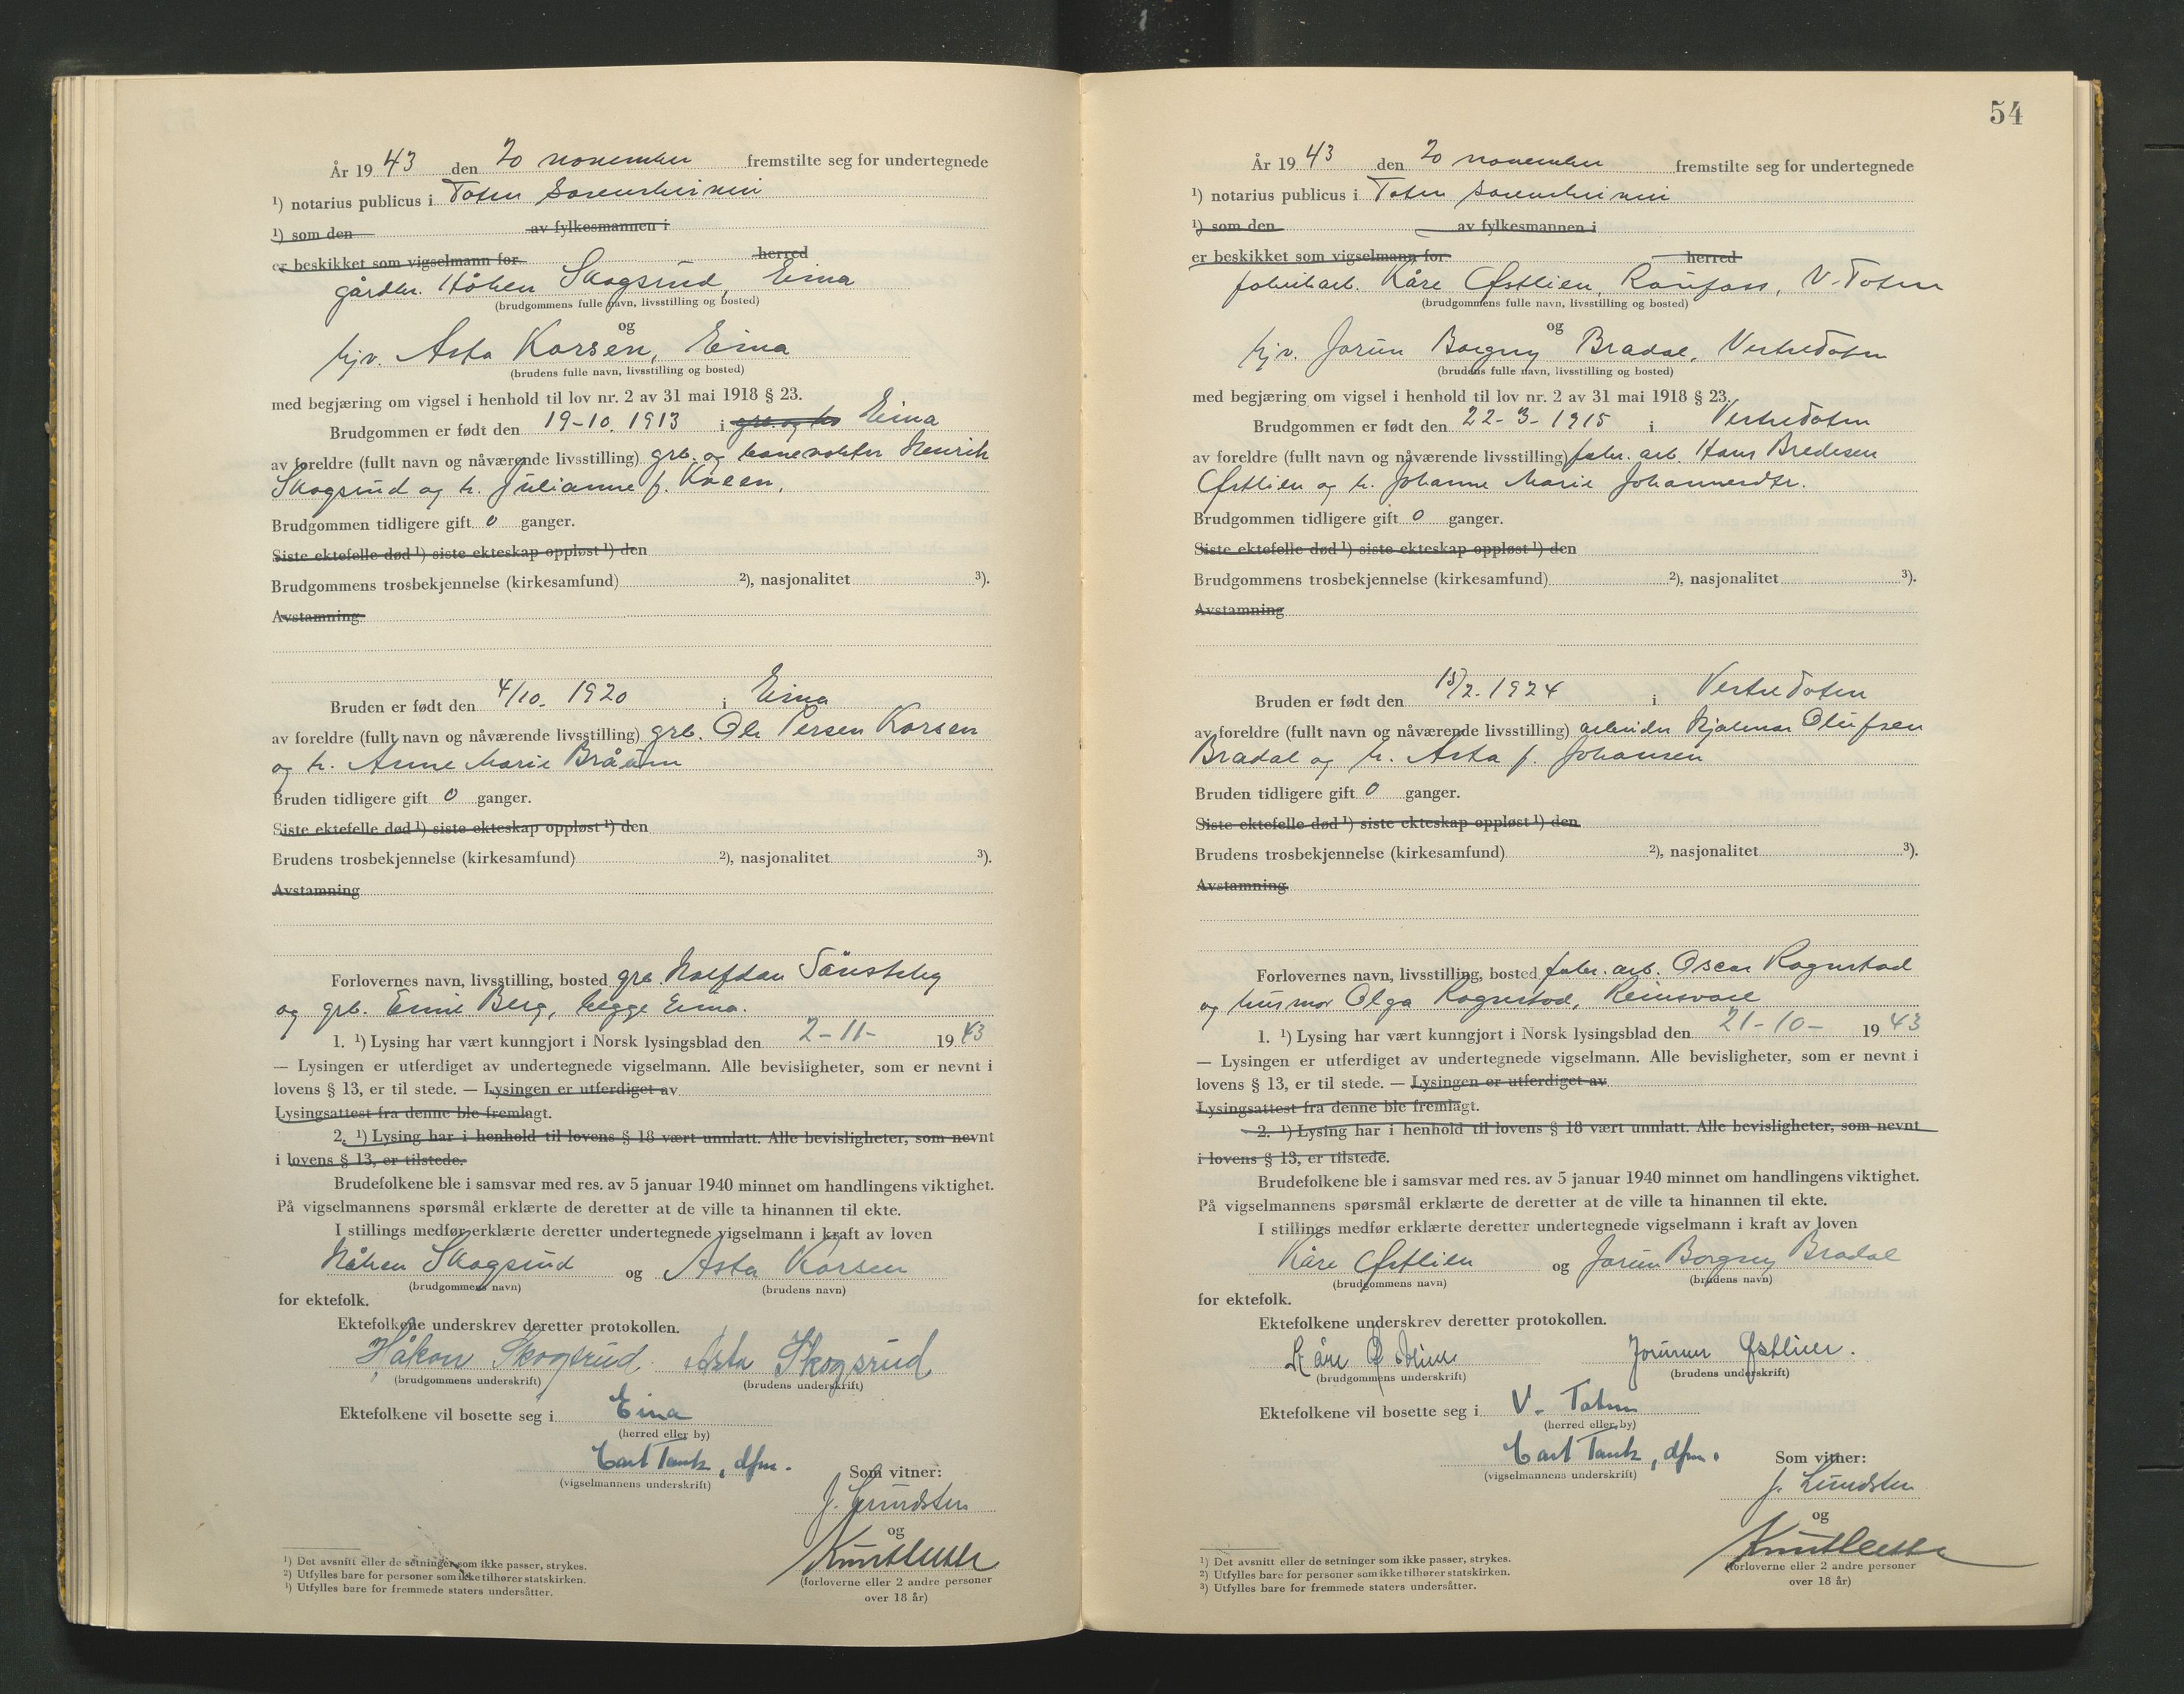 År 1943 den 20 november fremstilte seg for undertegnede
¹) notarius publicus i Toten Sorenskriveri
¹) som den av fylkesmannen i
er beskikket som vigselmann for herred
gårdbr. Håken Skogsrud, Eina
(brudgommens fulle navn, livsstilling og bosted)
og
hjv. Asta Korsen, Eina
(brudens fulle navn, livsstilling og bosted)
med begjæring om vigsel i henhold til lov nr. 2 av 31 mai 1918 § 23.
Brudgommen er født den 19-10. 1913 i Eina
av foreldre (fullt navn og nåværende livsstilling) grb. og banevokter Henrik
Skogsrud og h. Julianne f.
Brudgommen tidligere gift 0 ganger.
Siste ektefelle død ¹) siste ekteskap oppløst ¹) den
Brudgommens trosbekjennelse (kirkesamfund) ²), nasjonalitet ³).
Avstamning
Bruden er født den 4/10. 1920 i Eina
av foreldre (fullt navn og nåværende livsstilling) grb. Ole Persen Korsen
og h. Anne Marie Bråten
Bruden tidligere gift 0 ganger.
Siste ektefelle død ¹) siste ekteskap oppløst ¹) den
Brudens trosbekjennelse (kirkesamfund) ²), nasjonalitet ³).
Avstamning
Forlovernes navn, livsstilling, bosted grb Halfdan Sønsteby
og grb. Emil Berg, begge Eina.
1. ¹) Lysing har vært kunngjort i Norsk lysingsblad den 2-11- 1943
— Lysingen er utferdiget av undertegnede vigselmann. Alle bevisligheter, som er nevnt i
lovens § 13, er til stede. — Lysingen er utferdiget av
Lysingsattest fra denne ble fremlagt.
2. ¹) Lysing har i henhold til lovens § 18 vært unnlatt. Alle bevisligheter, som nevnt
i lovens § 13, er tilstede.
Brudefolkene ble i samsvar med res. av 5 januar 1940 minnet om handlingens viktighet.
På vigselmannens spørsmål erklærte de deretter at de ville ta hinannen til ekte.
I stillings medfør erklærte deretter undertegnede vigselmann i kraft av loven
Håken Skogsrud og Asta Korsen
(brudgommens navn) (brudens navn)
for ektefolk.
Ektefolkene underskrev deretter protokollen.
Håkon Skogsrud Asta Skogsrud
(brudgommens underskrift) (brudens underskrift)
Ektefolkene vil bosette seg i Eina
(herred eller by)
Carl Tank, dfm.
(vigselmannens underskrift)
Som vitner:
J. Lundsten
og
(forloverne eller 2 andre personer
over 18 år)
¹) Det avsnitt eller de setninger som ikke passer, strykes.
²) Utfylles bare for personer som ikke tilhører statskirken.
³) Utfylles bare for fremmede staters undersåtter.
54
År 1943 den 20 november fremstilte seg for undertegnede
¹) notarius publicus i Toten sorenskriveri
¹) som den av fylkesmannen i
er beskikket som vigselmann for herred
fabrikarb. Kåre Østlien, Raufoss, V-Toten
(brudgommens fulle navn, livsstilling og bosted)
og
hjv. Jorun Borgny Bradal, Vestre Toten
(brudens fulle navn, livsstilling og bosted)
med begjæring om vigsel i henhold til lov nr. 2 av 31 mai 1918 § 23.
Brudgommen er født den 22-3-1915 i Vestre Toten
av foreldre (fullt navn og nåværende livsstilling) fabr. arb. Hans Bredesen
Østlien og h. Johanne Marie Johannesdtr.
Brudgommen tidligere gift 0 ganger.
Siste ektefelle død ¹) siste ekteskap oppløst ¹) den
Brudgommens trosbekjennelse (kirkesamfund) ²), nasjonalitet ³).
Avstamning
Bruden er født den 15/2. 1924 i Vestre Toten
av foreldre (fullt navn og nåværende livsstilling) arbeider Hjalmar Olufsen
Bradal og h. Asta f. Johansen
Bruden tidligere gift 0 ganger.
Siste ektefelle død ¹) siste ekteskap oppløst ¹) den
Brudens trosbekjennelse (kirkesamfund) ²), nasjonalitet ³).
Avstamning
Forlovernes navn, livsstilling, bosted fabr. arb. Oscar Rognstad
og husmor Olga Rognstad, Reinsvoll
1. ¹) Lysing har vært kunngjort i Norsk lysingsblad den 21-10- 1943
— Lysingen er utferdiget av undertegnede vigselmann. Alle bevisligheter, som er nevnt i
lovens § 13, er til stede. — Lysingen er utferdiget av
Lysingsattest fra denne ble fremlagt.
2. ¹) Lysing har i henhold til lovens § 18 vært unnlatt. Alle bevisligheter, som nevnt
i lovens § 13, er tilstede.
Brudefolkene ble i samsvar med res. av 5 januar 1940 minnet om handlingens viktighet.
På vigselmannens spørsmål erklærte de deretter at de ville ta hinannen til ekte.
I stillings medfør erklærte deretter undertegnede vigselmann i kraft av loven
Kåre Østlien og Jorun Borgny Bradal
(brudgommens navn) (brudens navn)
for ektefolk.
Ektefolkene underskrev deretter protokollen.
Kåre Østlien Jorunn Østlien.
(brudgommens underskrift) (brudens underskrift)
Ektefolkene vil bosette seg i V. Toten
(herred eller by)
Carl Tank, dfm.
(vigselmannens underskrift)
Som vitner:
J. Lundsten
og
(forloverne eller 2 andre personer
over 18 år)
¹) Det avsnitt eller de setninger som ikke passer, strykes.
²) Utfylles bare for personer som ikke tilhører statskirken.
³) Utfylles bare for fremmede staters undersåtter.